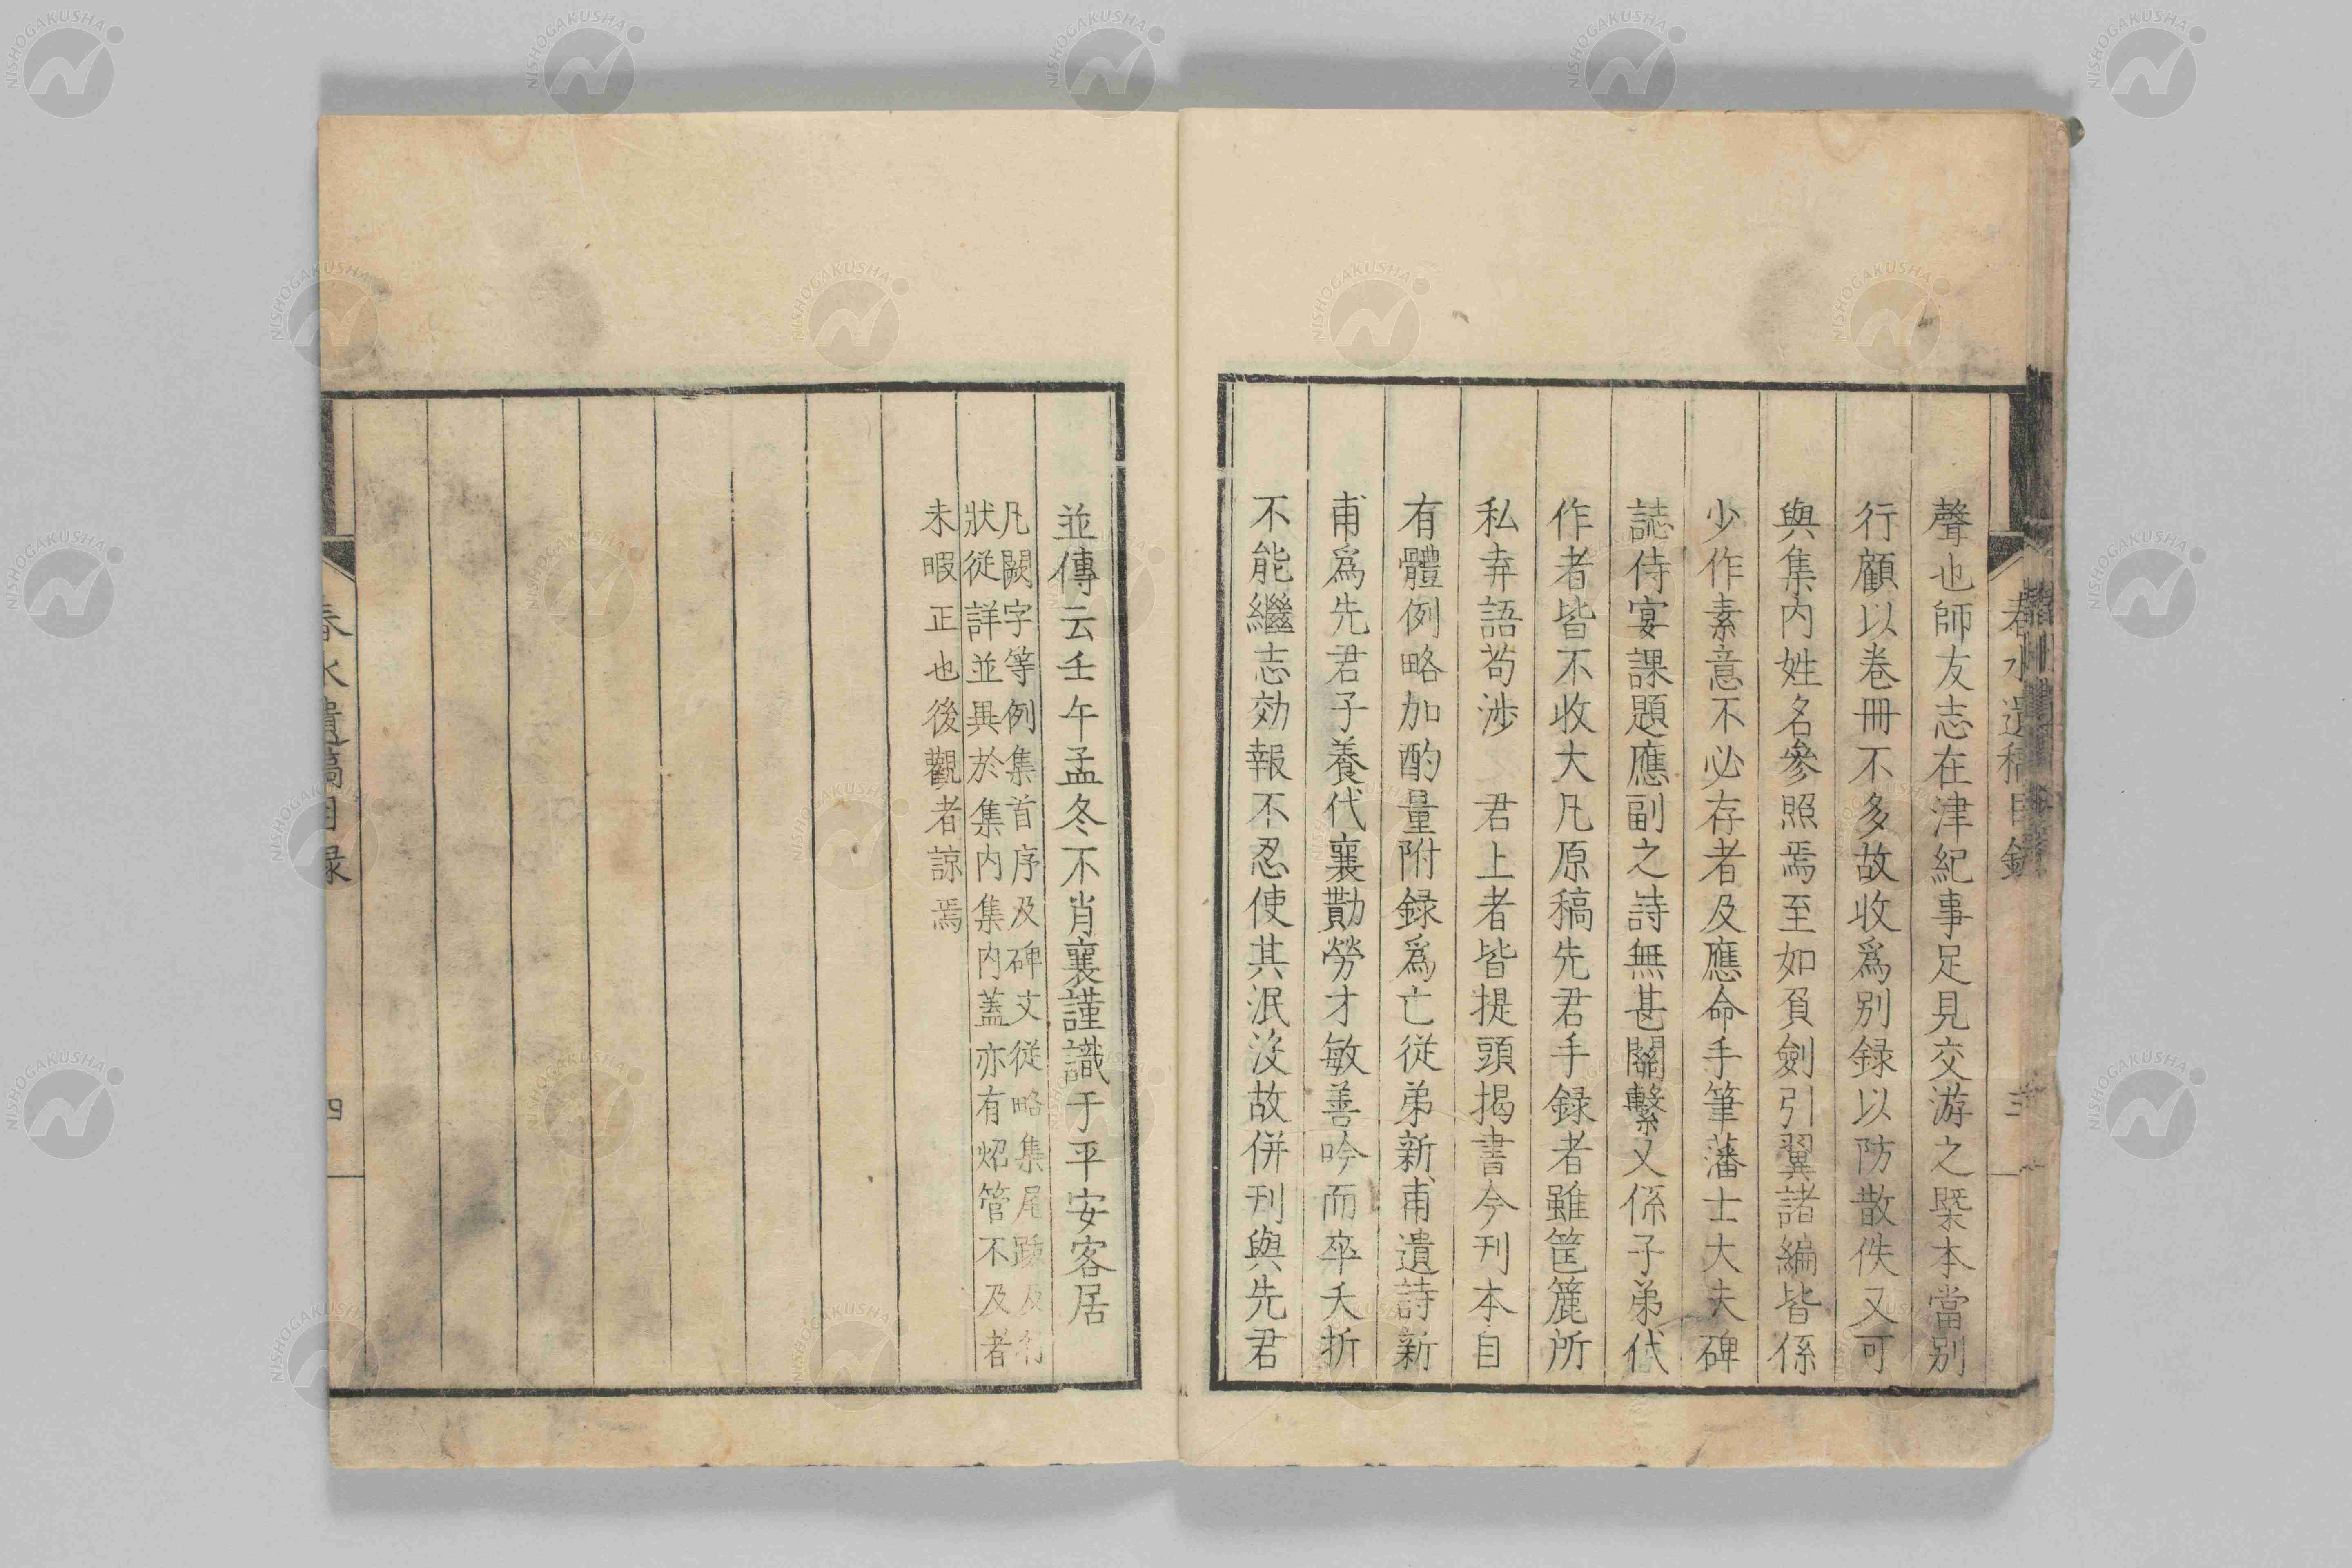 聲也師友志在津紀事足見交游之槩本當別
行顧以卷冊不多故收爲別録以防散佚又可
與集内姓名參照焉至如負劍引翼諸編皆係
少作素意不必存者及應命手筆藩士大夫碑
誌侍宴課題應副之詩無甚關繫又係子弟代
作者皆不收大凡原稿先君手録者雖筐簏所
私弆語苟涉 君上者皆提頭揭書今刊本自
有體例略加酌量附録爲亡從弟新甫遺詩新
甫爲先君子養代襄勩勞才敏善吟而卒夭折
不能繼志効報不忍使其泯沒故併刊與先君
春水遺稿目錄 三
並傳云壬午孟冬不肖襄謹識于平安客居
凡闕字等例集首序及碑文從略集尾跋及行
狀從詳並異於集内集内蓋亦有炤管不及者
未暇正也後觀者諒焉
春水遺稿目録 四
NISHOGAKUSHA